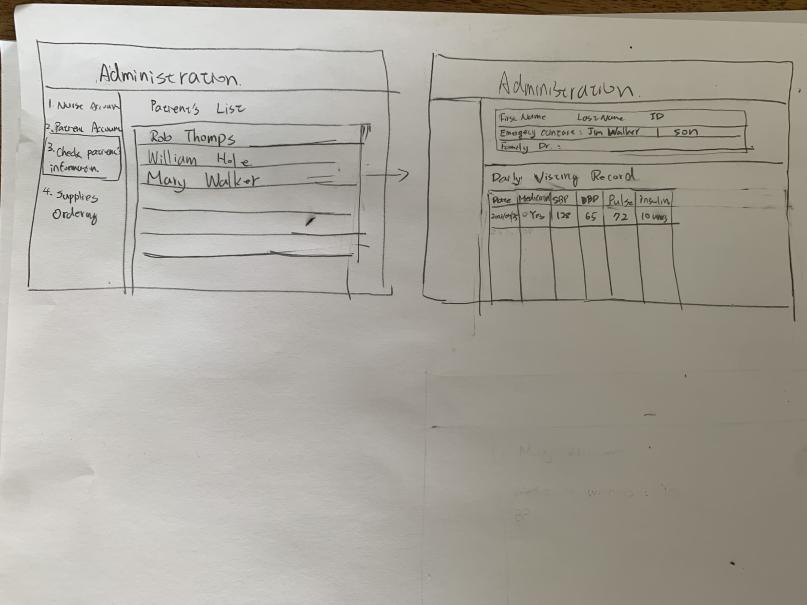 Administration
1. Nurse Account
2. Patient Account
3. Check patient's
information.
4. Supplies
Ordering
Patient's List
Rob Thomps
William Hole
Mary Walker
Administration
First Name Last Name ID
Jim Walker son
Family Dr.:
Daily Visting Record
Date SBP DBP Pulse insulin
Yes 128 65 72 10